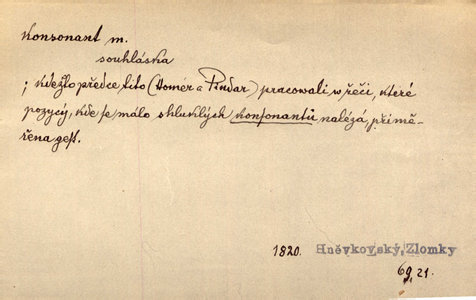 Konsonant m.
souhláska
; kdežto předce tito (Homér a Pindar) pracowali w řěči, které
pozycý, kde se málo shluklých konsonantů nalézá, přimě-
řena gest.
1820. Hněvkovský, Zlomky
69, 21.